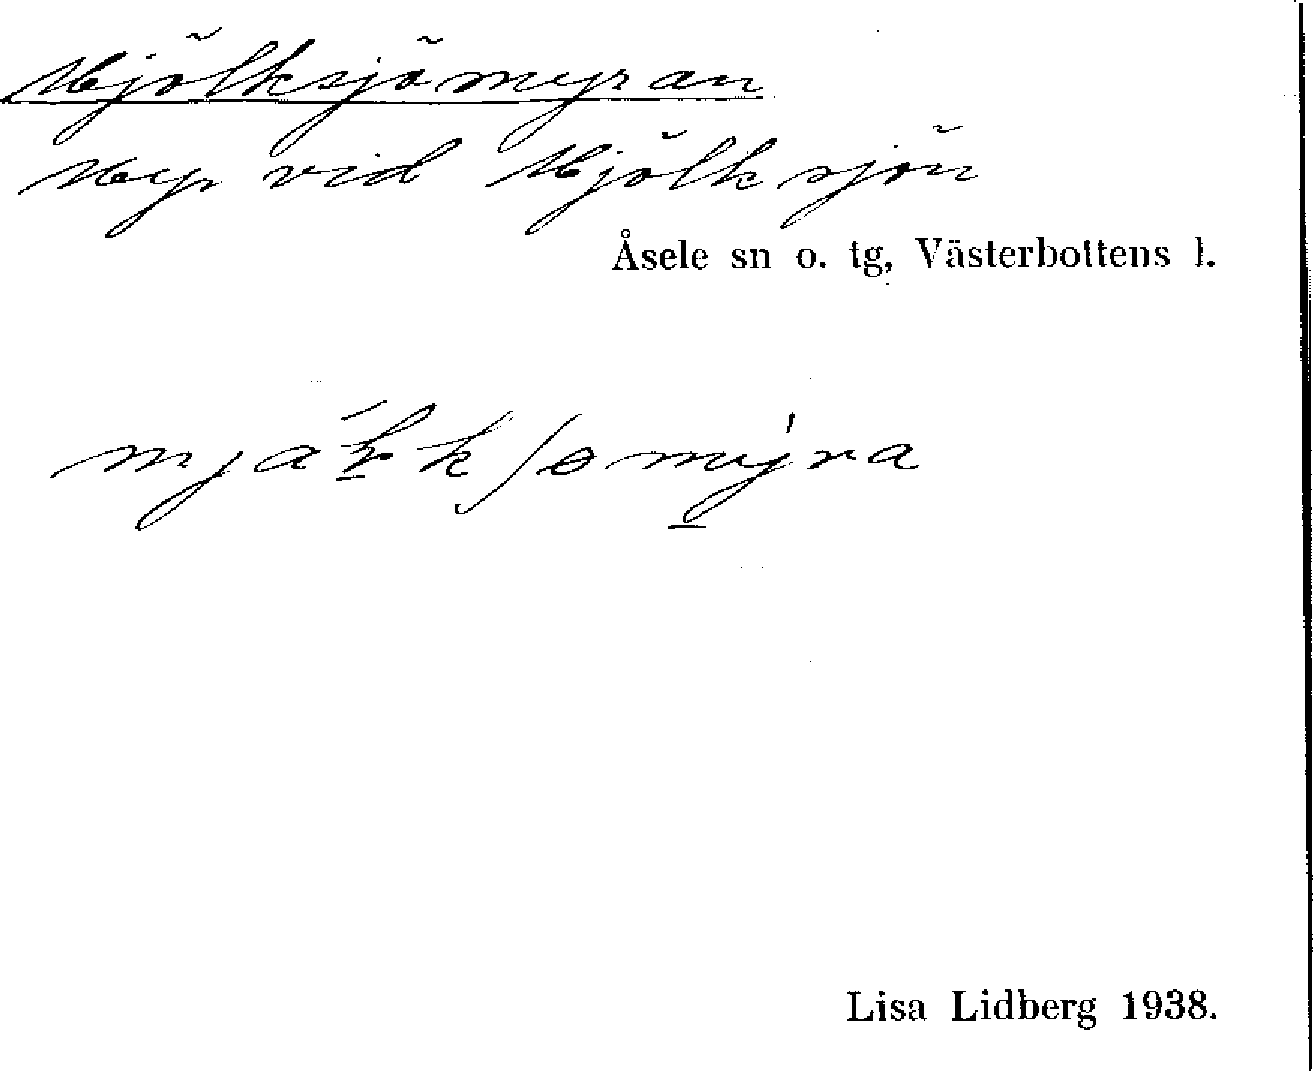 Mjölksjömyran
Myr vid Mjölksjön
Åsele sn o. tg, Västerbottens l.
Lisa Lidberg 1938.